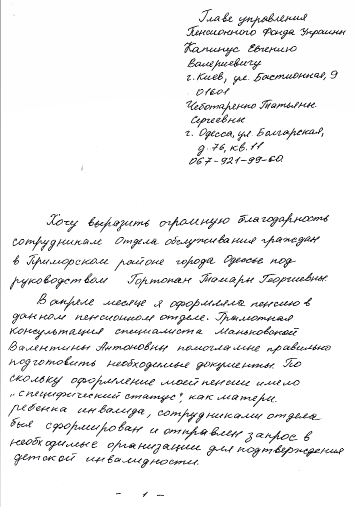 Главе управления
Пенсионного Фонда Украины
Капинус Евгению
Валериевичу
г. Киев, ул. Бастионная, 9
01601
Чеботаренко Татьяны
Сергеевны
г. Одесса, ул. Болгарская,
д. 76, кв. 11
067-921-99-60
Хочу выразить огромную благодарность
сотрудникам Отдела обслуживания граждан
в Приморском районе города Одессы под
руководством Гортопан Тамары Георгиевны.
В апреле месяце я оформляла пенсию в
данном пенсионном отделе. Грамотная
консультация специалиста Маньковской
Валентины Антоновны помогла мне правильно
подготовить необходимые документы. По
скольку оформление моей пенсии имело
„специфический статус", как матери
ребенка инвалида, сотрудниками отдела
был сформирован и отправлен запрос в
необходимые организации для подтверждения
детской инвалидности.
- 1 -